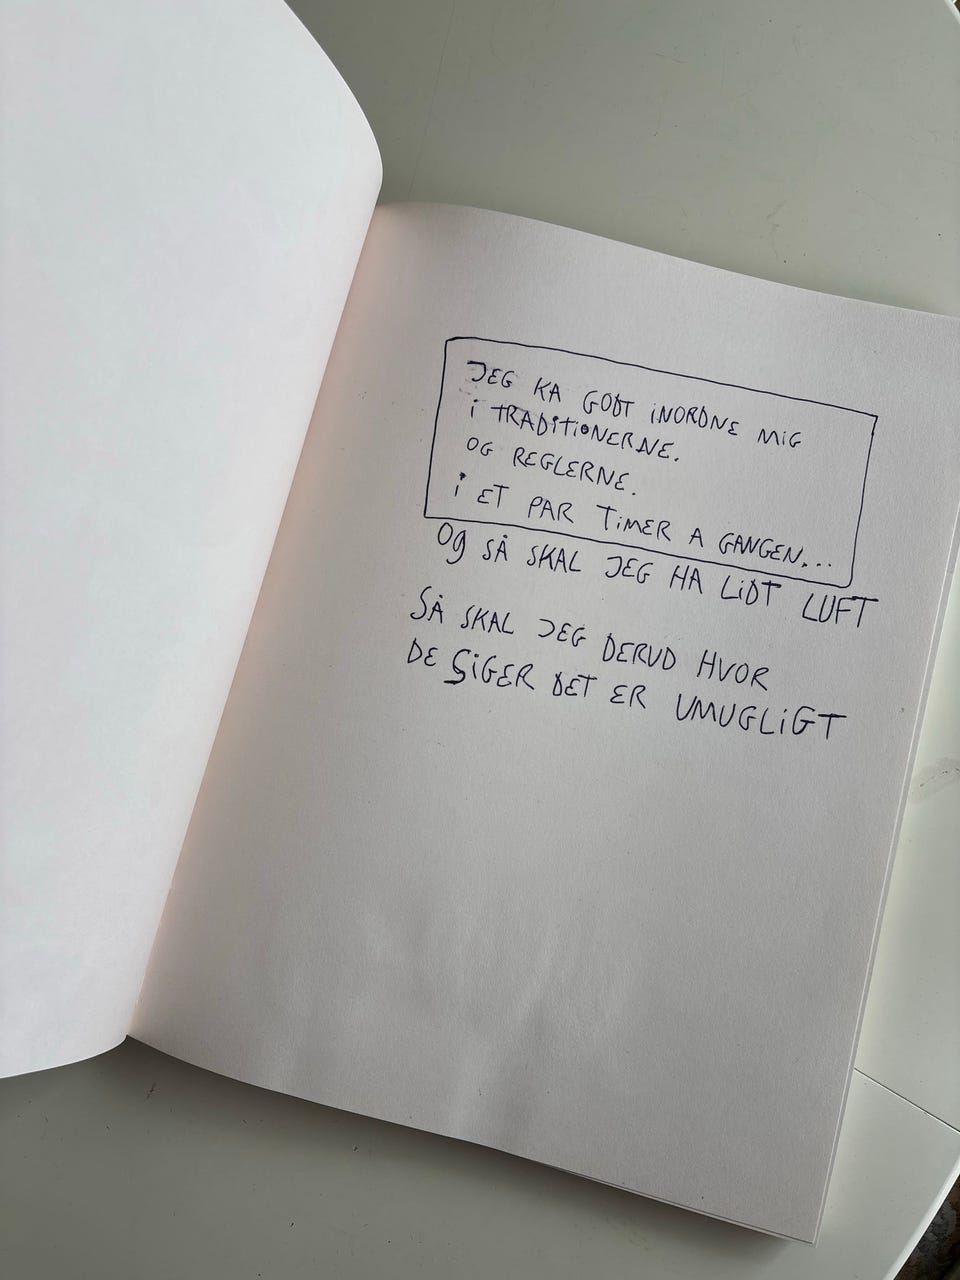 JEG KA GODT iNORDNE MiG
i TRADiTiONERNE.
OG REGLERNE.
i ET PAR TiMER A GANGEN...
Og SÅ SKAL JEG HA LiDT LUFT
SÅ SKAL JEG DERUD HVOR
DE SiGER DET ER UMUGLiGT